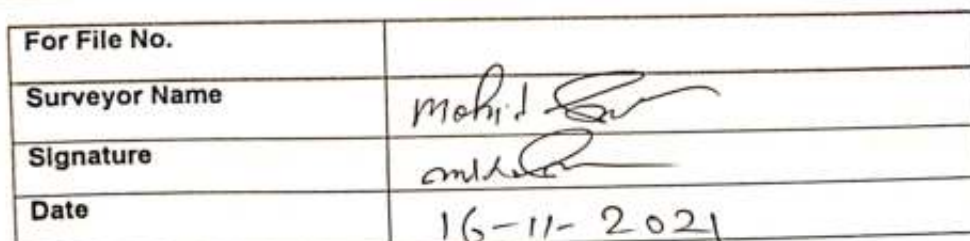 For File No.
Surveyor Name Mohid
Signature
Date 16-11-2021